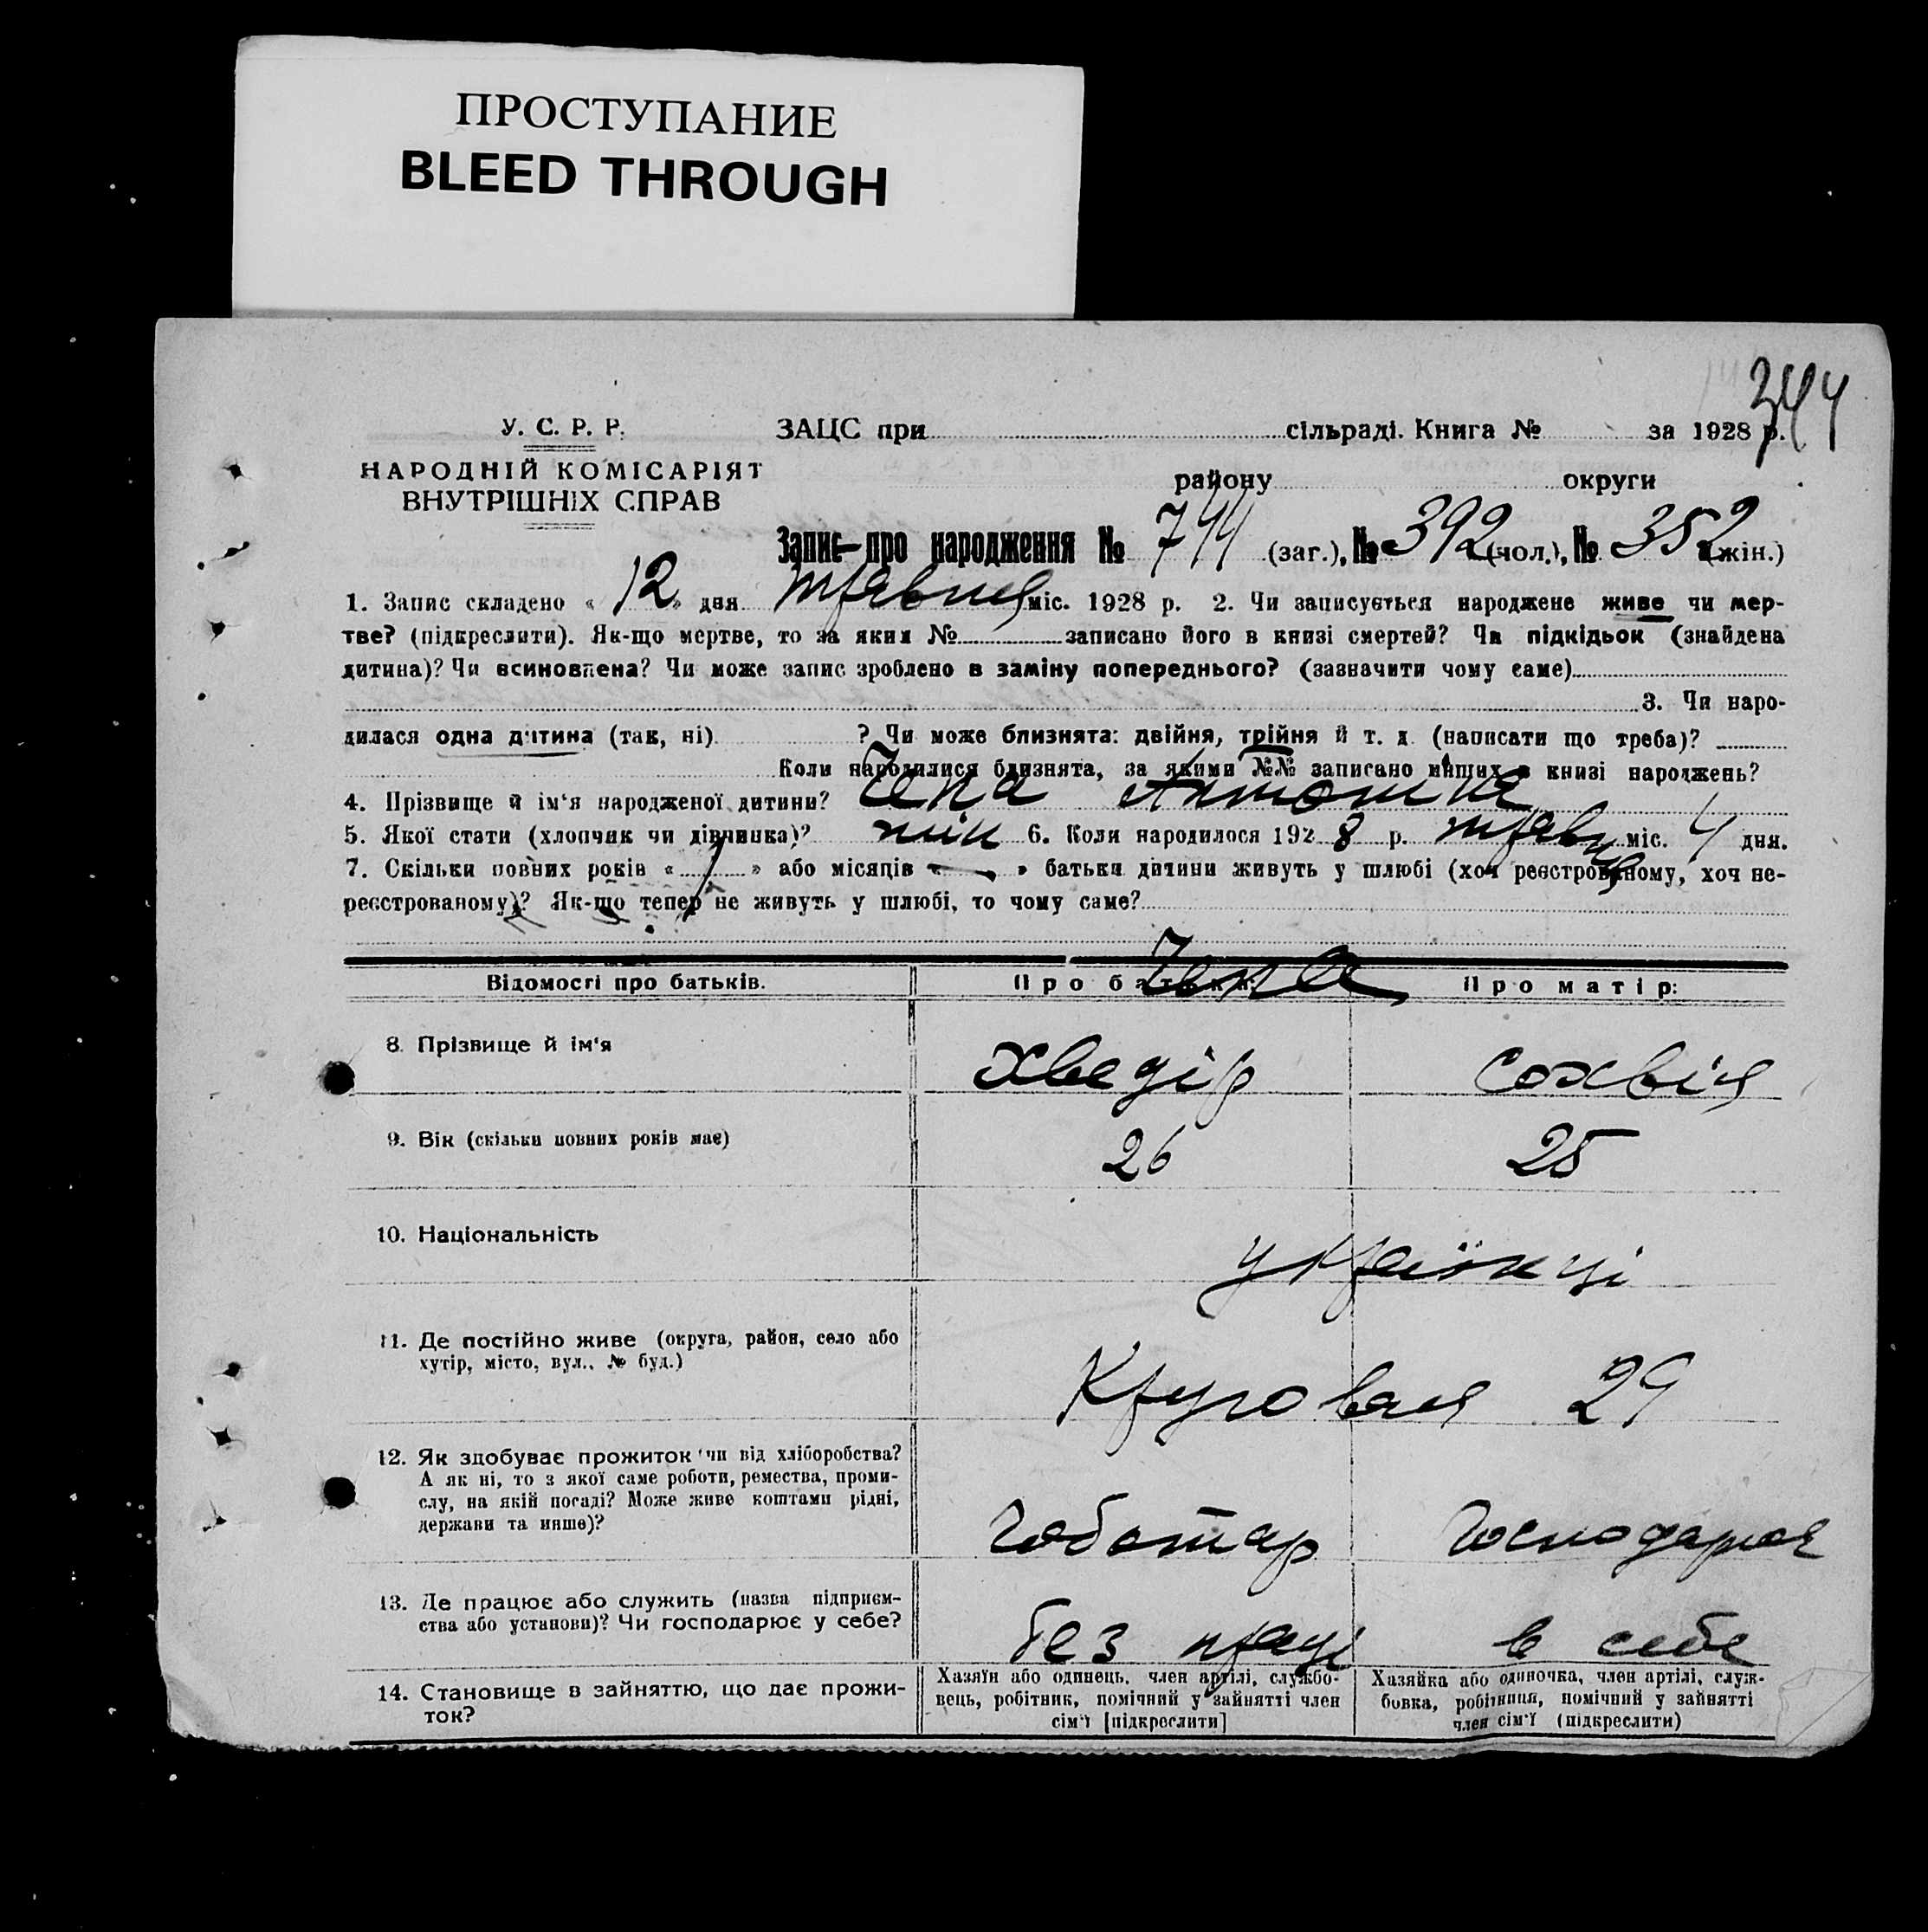 ПРОСТУПАНИЕ
BLEED THROUGH
344
У. С. Р. Р. ЗАЦС при сільраді. Книга № за 1928 р.
НАРОДНІЙ КОМІСАРІЯТ
ВНУТРІШНІХ СПРАВ
району округи
Запис про народження № 744 (заг.), № 392 (чол.), № 352 (жін.)
1. Запис складено « 12 » дня травня міс. 1928 р. 2. Чи записується народжене живе чи мер-
тве? (підкреслити). Як-що мертве, то за яким № записано його в книзі смертей? Чи підкідьок (знайдена
дитина)? Чи всиновлена? Чи може запис зроблено в заміну попереднього? (зазначити чому саме)
3. Чи наро-
дилася одна дитина (так, ні) ? Чи може близнята: двійня, трійня й т. д. (написати що треба)?
Коли народилися близнята, за якими №№ записано инших в книзі народжень?
4. Прізвище й ім'я народженої дитини?
5. Якої стати (хлопчик чи дівчинка)? жін 6. Коли народилося 1928 р. травня міс. 4 дня.
7. Скільки повних років « 1 » або місяців « - » батьки дитини живуть у шлюбі (хоч реєстрованому, хоч не-
реєстрованому)? Як-що тепер не живуть у шлюбі, то чому саме?
Відомості про батьків. Про батька: Про матір:
8. Прізвище й ім'я Хведір Сохвія
9. Вік (скільки повних років має) 26 25
10. Національність українці
11. Де постійно живе (округа, район, село або
хутір, місто, вул., № буд.)
Круговая 29
12. Як здобуває прожиток чи від хліборобства?
А як ні, то з якої саме роботи, ремества, проми-
слу, на якій посаді? Може живе коштами рідні,
держави та инше)?
Чоботар Господарює
13. Де працює або служить (назва підприєм-
ства або установи)? Чи господарює у себе?
без праці в себе
14. Становище в зайняттю, що дає прожи-
ток?
Хазяїн або одинець, член артілі, службо-
вець, робітник, помічний у зайнятті член
сім'ї [підкреслити]
Хазяйка або одиночка, член артілі, служ-
бовка, робітниця, помічний у зайнятті
член сім'ї (підкреслити)